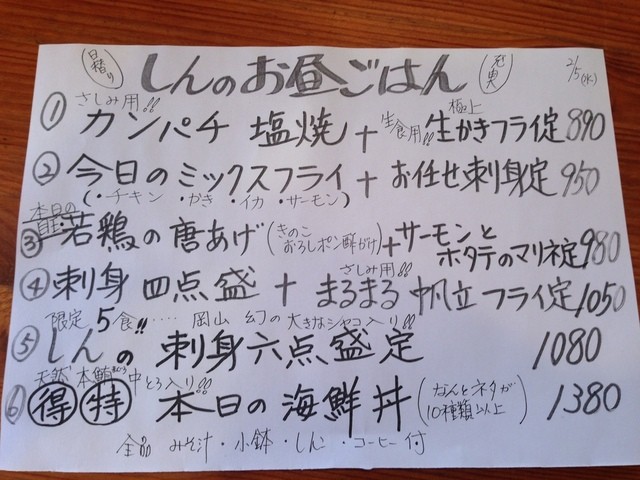 日替り しんのお昼ごはん 2/5(水)
さしみ用!!
① カンパチ 塩焼+生食用!!極上生かきフライ定 890
② 今日のミックスフライ+お任せ刺身定 950
(・チキン ・かき ・イカ ・サーモン)
本日の
③ 若鶏の唐あげ(きのこおろしポン酢がけ)+サーモンとホタテのマリネ定 980
さしみ用!!
④ 刺身四点盛+まるまる帆立フライ定 1050
限定5食!!‥‥岡山 幻の大きなシャコ入り!!
⑤ しんの刺身六点盛定 1080
天然本鮪中とろ入り!!
⑥ 得 特 本日の海鮮丼(なんとネタが10種類以上) 1380
全品 みそ汁・小鉢・しんこ・コーヒー付